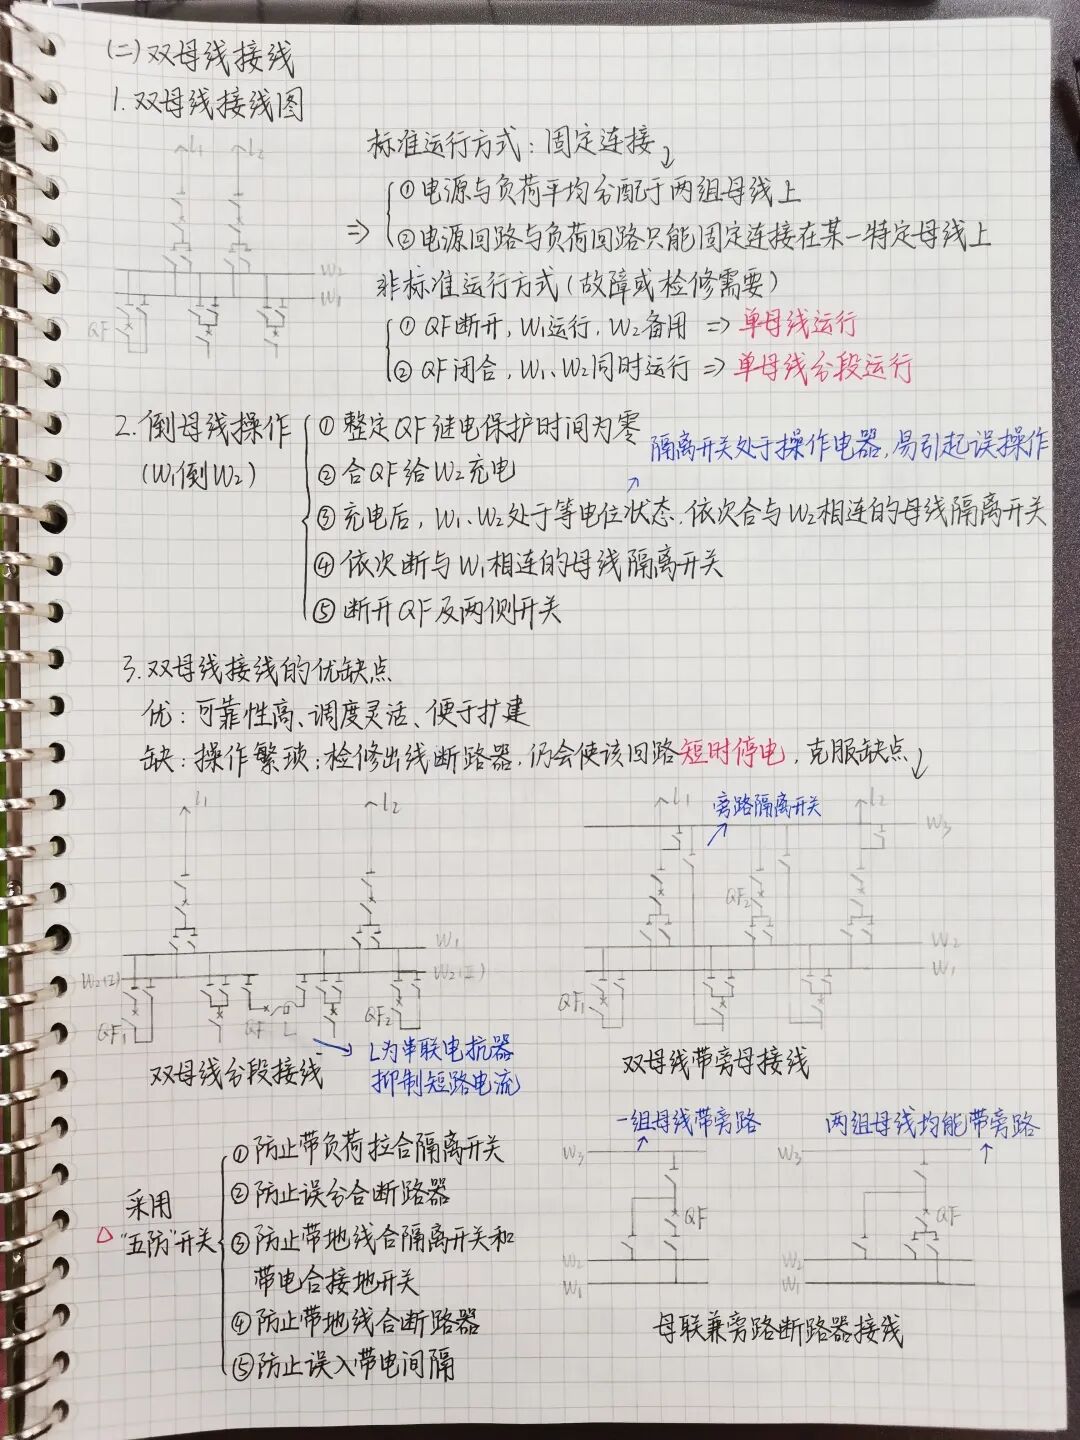 (二)双母线接线
1.双母线接线图
标准运行方式：固定连接
①电源与负荷平均分配于两组母线上
②电源回路与负荷回路只能固定连接在某一特定母线上
非标准运行方式(故障或检修需要)
①QF断开,W₁运行,W₂备用 => 单母线运行
②QF闭合,W₁、W₂同时运行 => 单母线分段运行
l₁ l₂
W₂
W₁
QF
2.倒母线操作
(W₁倒W₂)
①整定QF继电保护时间为零
隔离开关处于操作电器,易引起误操作
②合QF给W₂充电
③充电后,W₁、W₂处于等电位状态,依次合与W₂相连的母线隔离开关
④依次断与W₁相连的母线隔离开关
⑤断开QF及两侧开关
3.双母线接线的优缺点
优：可靠性高、调度灵活、便于扩建
缺：操作繁琐;检修出线断路器,仍会使该回路短时停电,克服缺点
l₁ l₂
W₁
W₂(I) W₂(II)
QF₁ QF L QF₂
L为串联电抗器
抑制短路电流
双母线分段接线
l₁ 旁路隔离开关 l₂
W₃
QF₂
W₂
W₁
QF₁
双母线带旁母接线
采用
△"五防"开关
①防止带负荷拉合隔离开关
②防止误分合断路器
③防止带地线合隔离开关和
带电合接地开关
④防止带地线合断路器
⑤防止误入带电间隔
一组母线带旁路
W₃
QF
W₂
W₁
两组母线均能带旁路
W₃
QF
W₂
W₁
母联兼旁路断路器接线